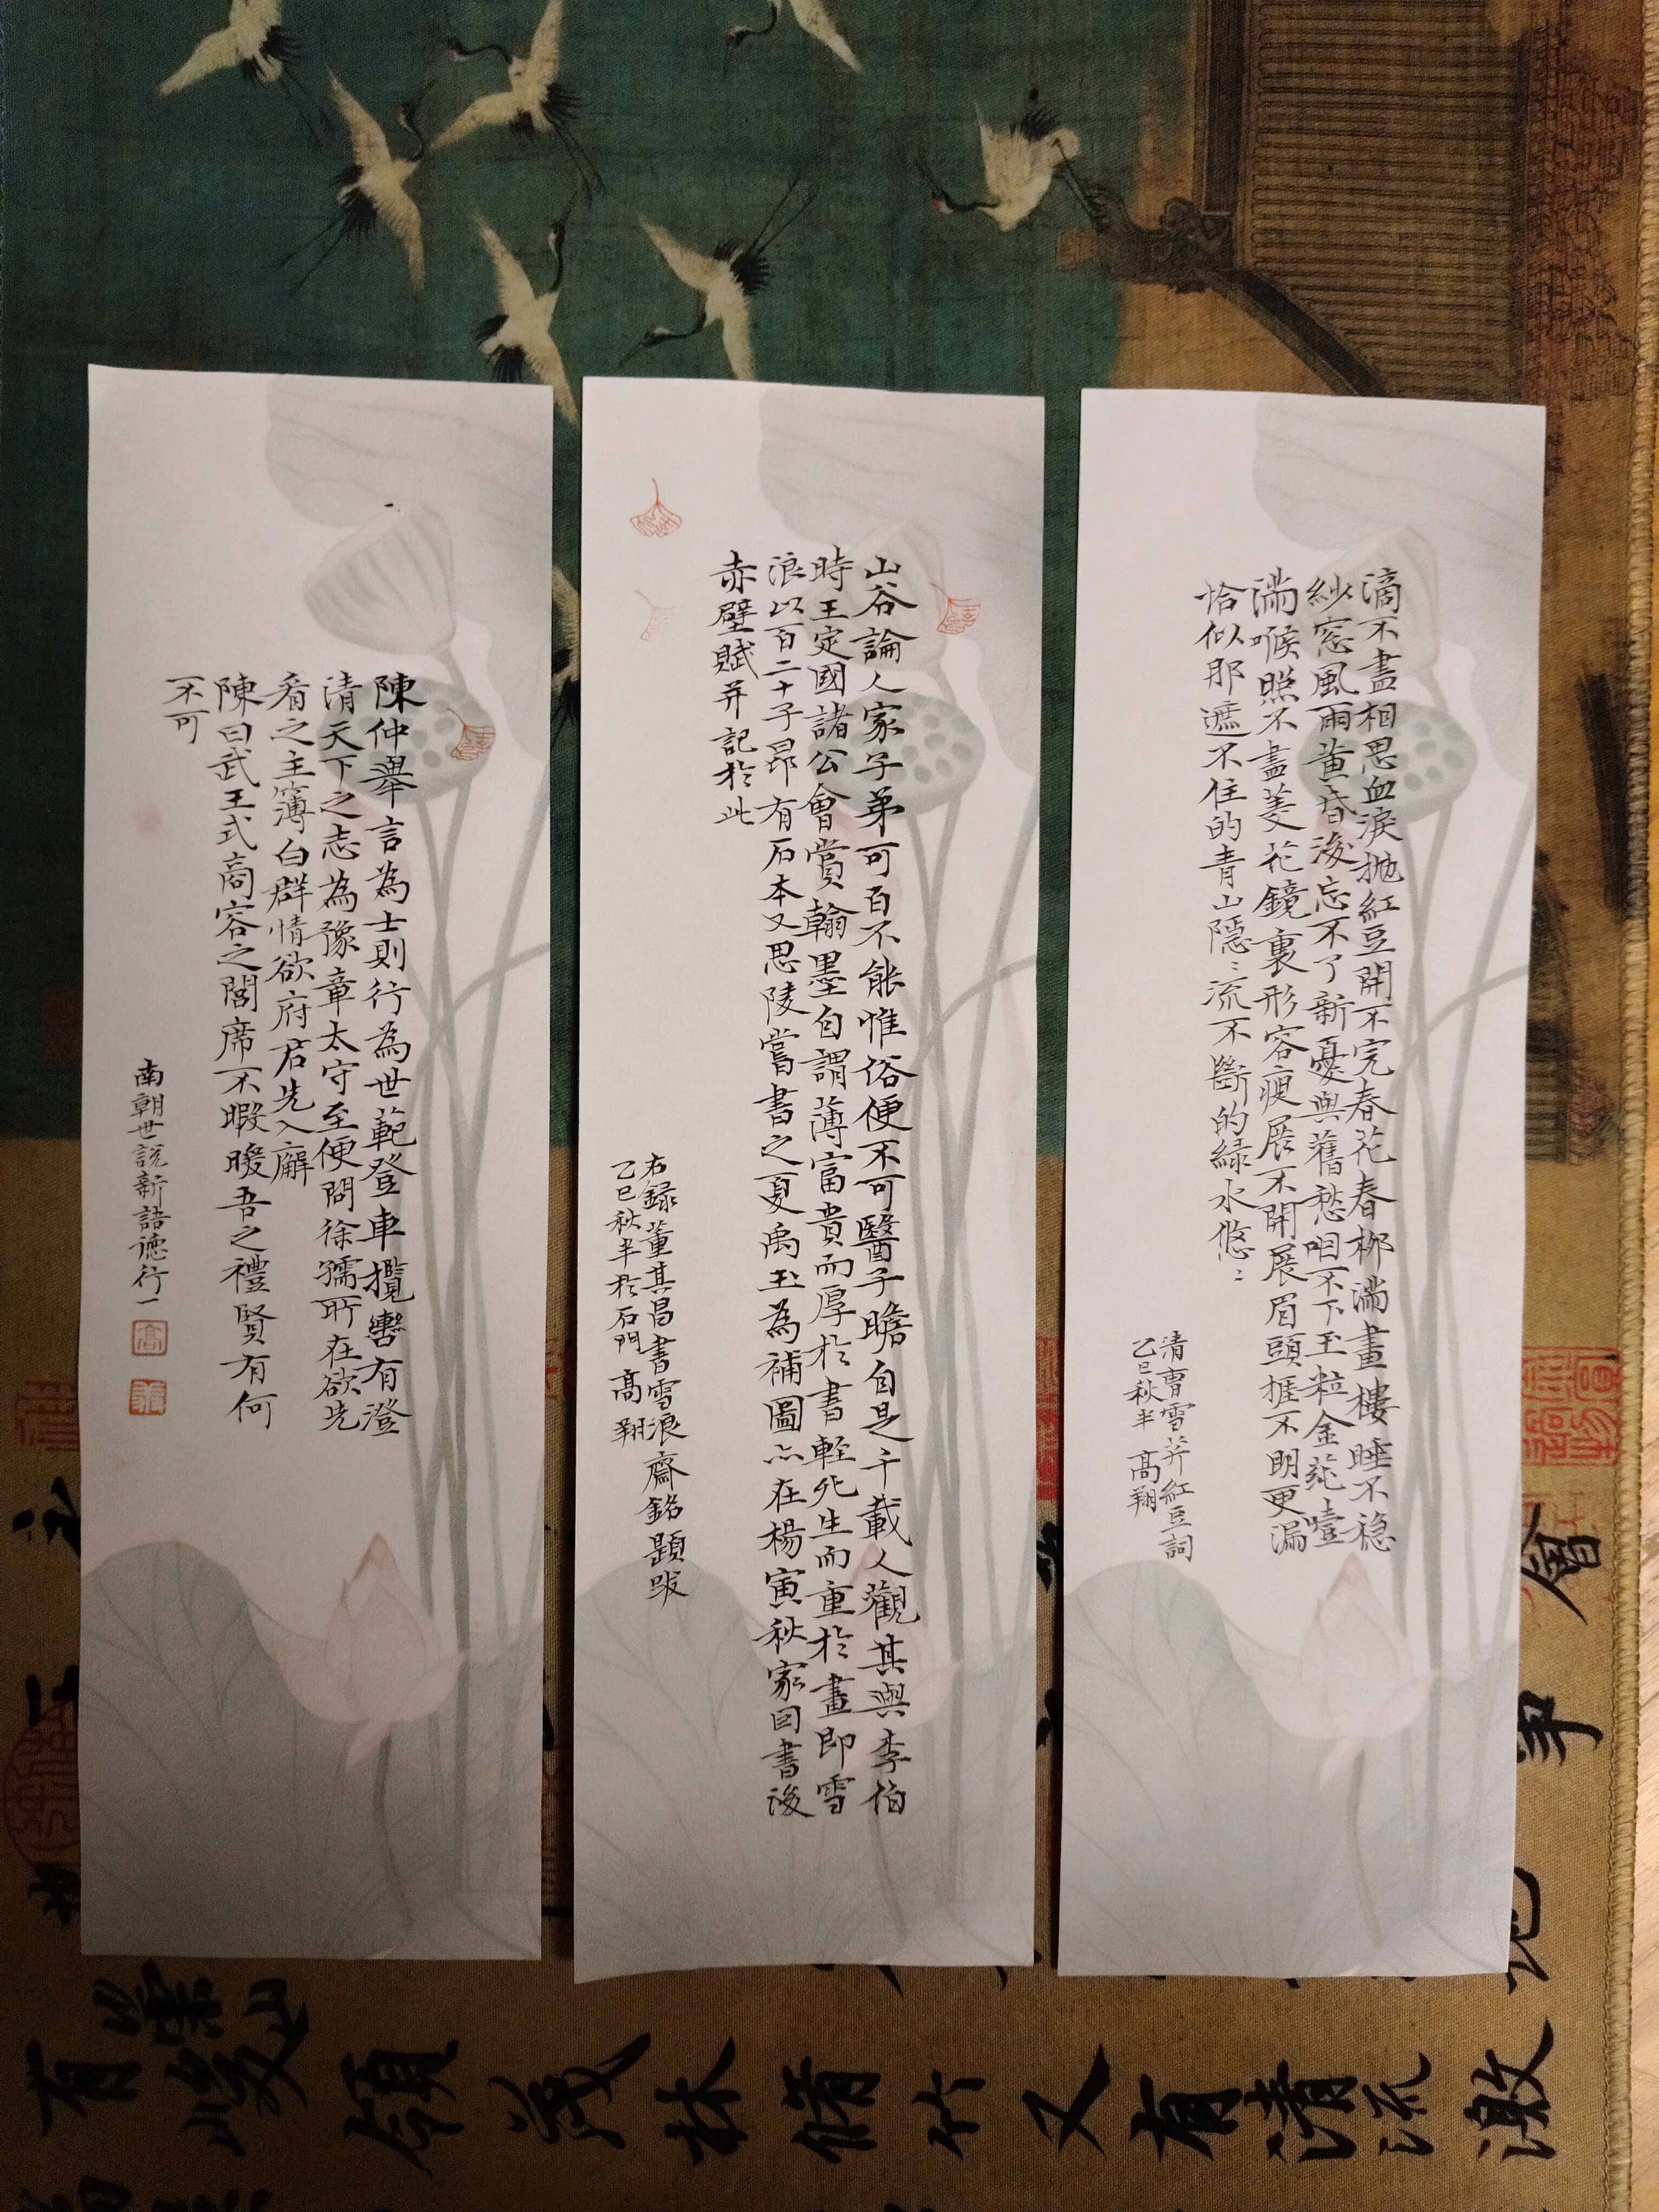 滴不盡相思血淚拋紅豆開不完春花春柳滿畫樓睡不穩
紗窓風雨黃昏後忘不了新憂與舊愁咽不下玉粒金蒓噎
滿喉照不盡菱花鏡裏形容瘦展不開展眉頭捱不明更漏
恰似那遮不住的青山隱〻流不斷的綠水悠〻
清曹雪芹紅豆詞
乙巳秋半 高翔
山谷論人家子弟可百不能惟俗便不可醫子瞻自是千載人觀其與李伯
時王定國諸公會賞翰墨自謂薄富貴而厚於書輕死生而重於畫即雪
浪以百二十子昂有石本又思陵嘗書之夏禹玉為補圖亦在楊寅秋家因書後
赤壁賦并記於此
右錄董其昌書雪浪齋銘題跋
乙巳秋半於石門 高翔
陳仲舉言為士則行為世範登車攬轡有澄
清天下之志為豫章太守至便問徐孺所在欲先
看之主簿白群情欲府君先入廨
陳曰武王式商容之閭席不暇暖吾之禮賢有何
不可
南朝世說新語德行一
高
有峻領茂林脩竹又有清流激